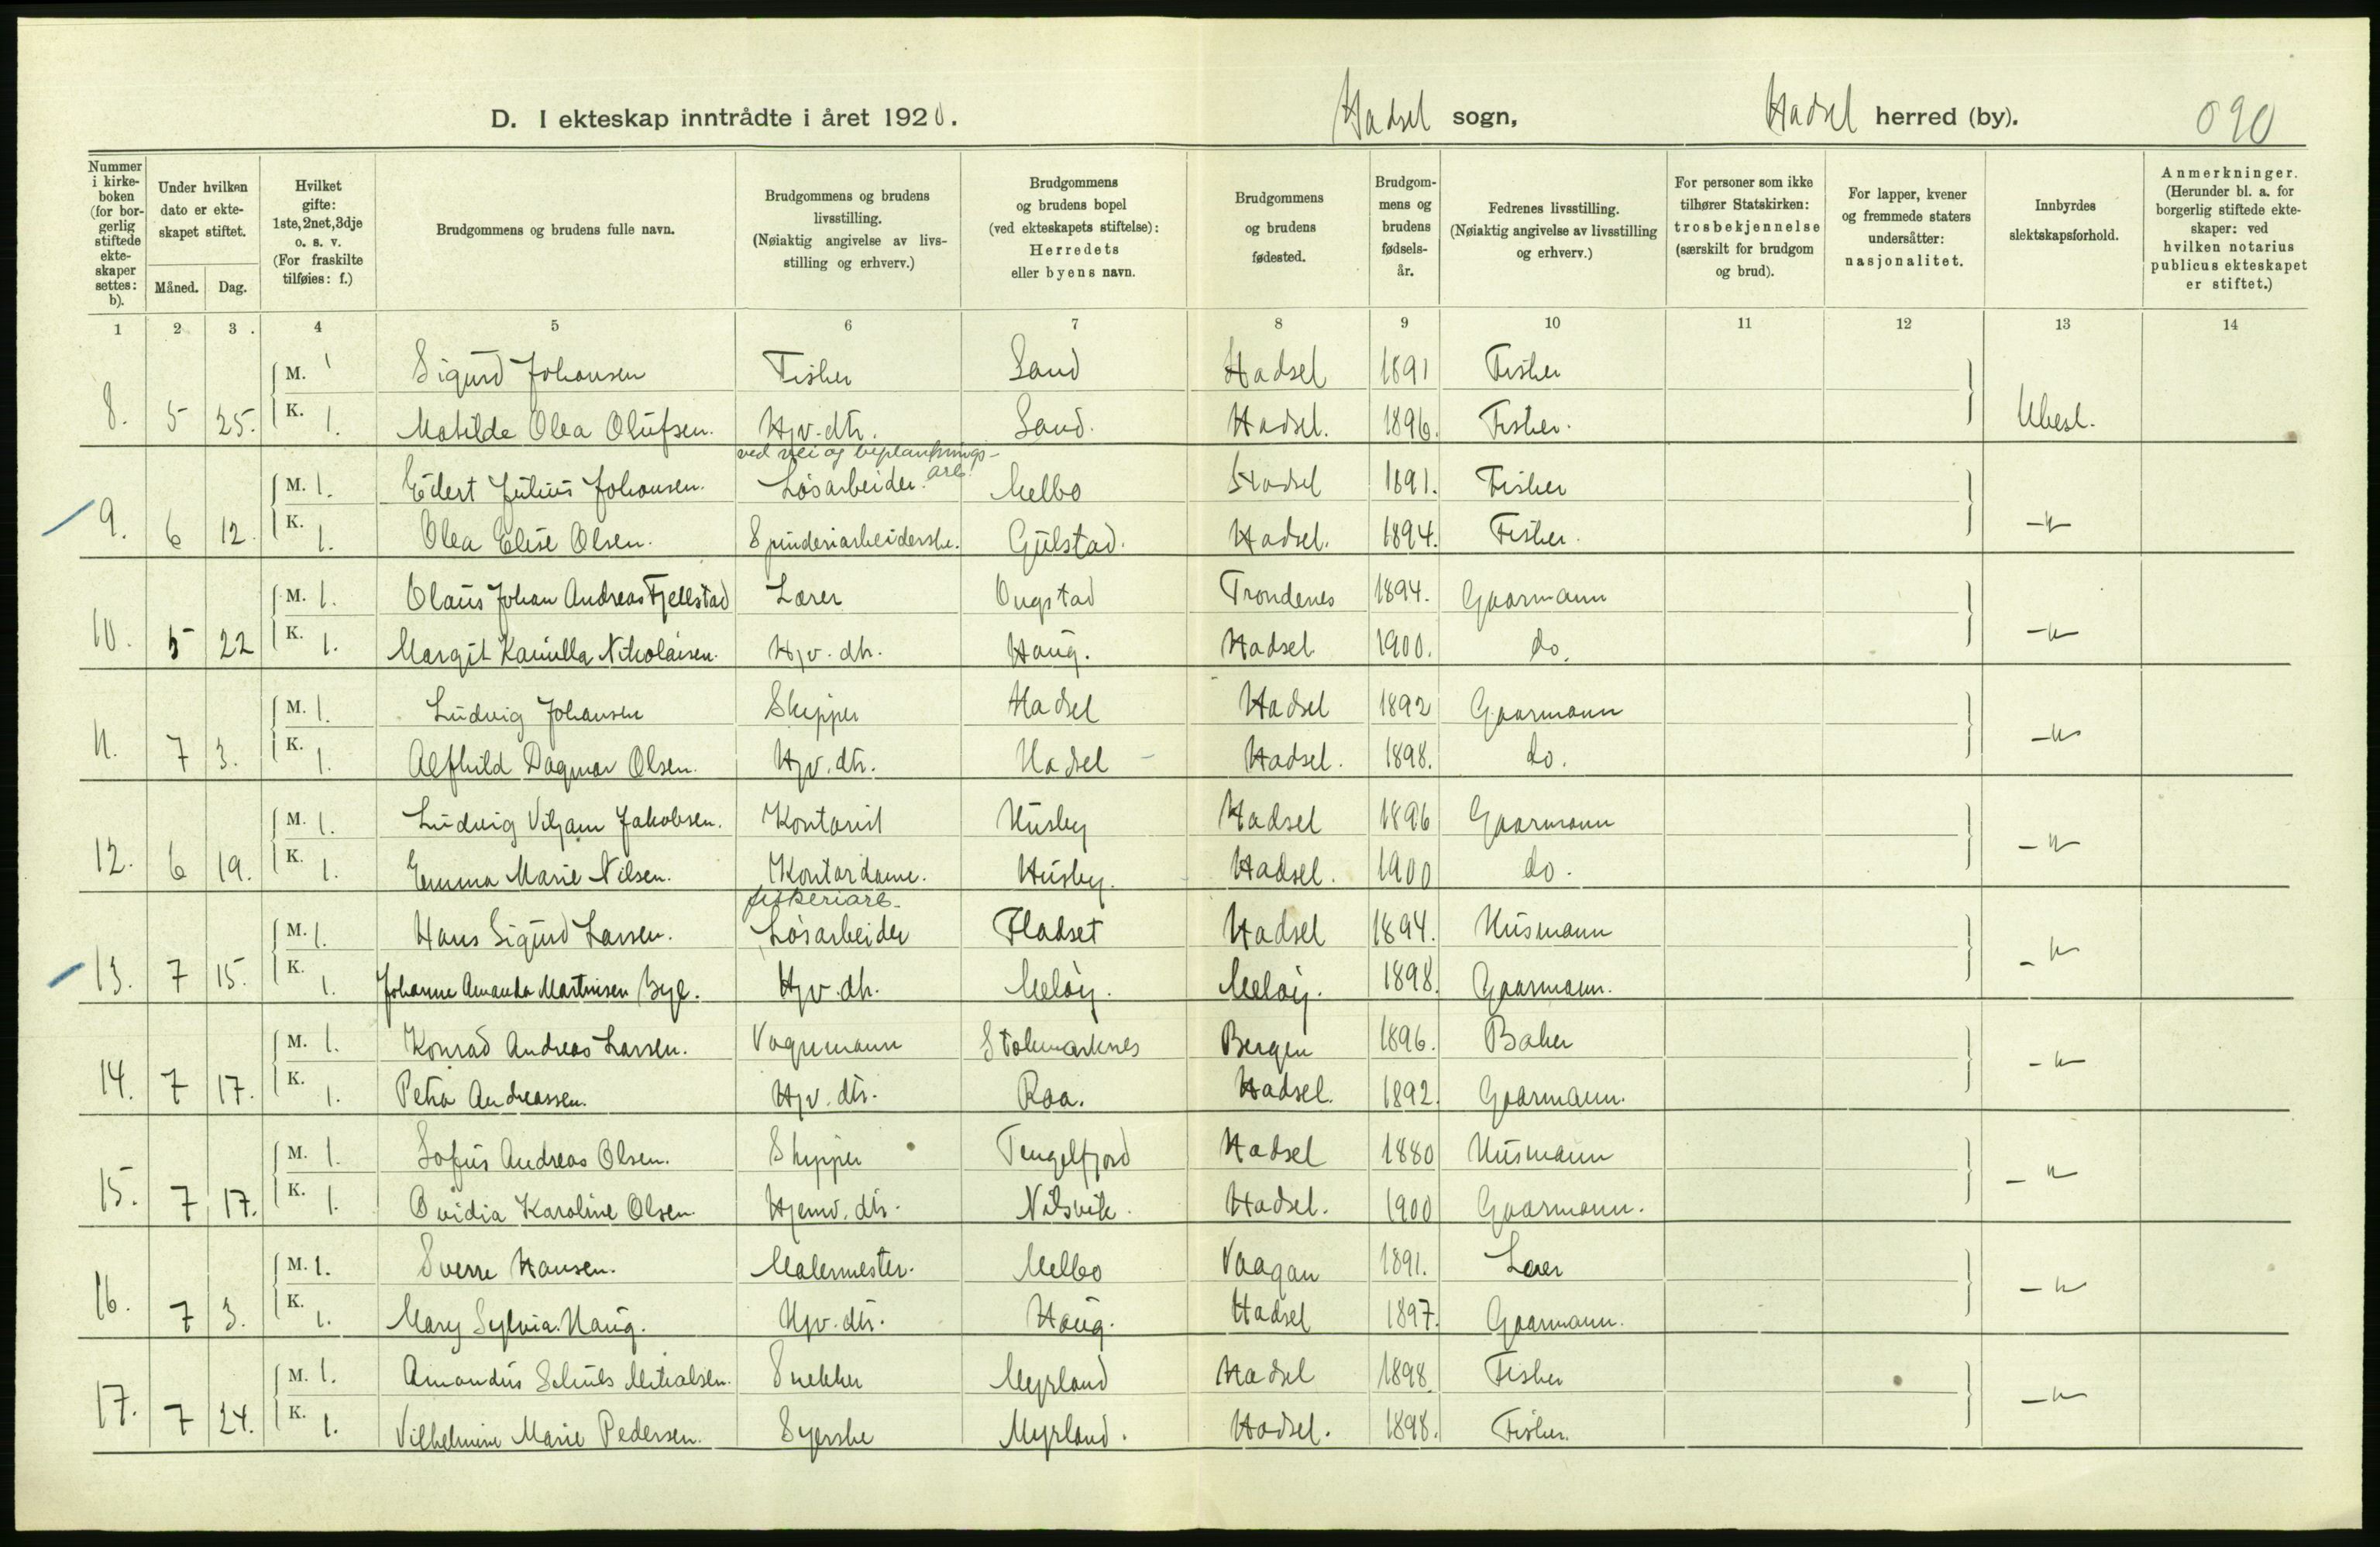 D. I ekteskap inntrådte i året 1920. Hadsel sogn, Hadsel herred (by). 090
Nummer i kirkeboken (for borgerlig stiftede ekteskaper settes: b).
Under hvilken dato er ekteskapet stiftet.
Måned. Dag.
Hvilket gifte: 1ste, 2net, 3dje o. s. v. (For fraskilte tilføies: f.)
Brudgommens og brudens fulle navn.
Brudgommens og brudens livsstilling. (Nøiaktig angivelse av livsstilling og erhverv.)
Brudgommens og brudens bopel (ved ekteskapets stiftelse): Herredets eller byens navn.
Brudgommens og brudens fødested.
Brudgommens og brudens fødselsår.
Fedrenes livsstilling. (Nøiaktig angivelse av livsstilling og erhverv.)
For personer som ikke tilhører Statskirken: trosbekjennelse (særskilt for brudgom og brud).
For lapper, kvener og fremmede staters undersåtter: nasjonalitet.
Innbyrdes slektskapsforhold.
Anmerkninger. (Herunder bl. a. for borgerlig stiftede ekteskaper: ved hvilken notarius publicus ekteskapet er stiftet.)
1 2 3. 4 5 6 7 8 9 10 11 12 13 14
M. 1 Sigurd Johansen Fisker Sand Hadsel 1891 Fisker
8. 5 25. K. 1. Matilde Olea Olufsen. Hjv. dtr. Sand. Hadsel. 1896. Fisker. Ubesl.
ved vei og beplantnings-
arb.
M. 1. Edert Julius Johansen. Løsarbeider. Melbo Hadsel 1891. Fisker
9. 6 12. K. 1. Olea Elise Olsen. Spinderiarbeiderske. Gulstad. Hadsel. 1894. Fisker. -"-
M. 1. Olaus Johan Andreas Fjellstad Lærer Ongstad Trondenes 1894. Gaarmann
10. 5 22 K. 1. Margit Kamilla Nikolaisen. Hjv. dtr. Haug. Hadsel 1900. do. -"-
M. 1. Ludvig Johansen Skipper Hadsel Hadsel 1892 Gaarmann
11. 7 3. K. 1. Alfhild Dagmar Olsen. Hjv. dtr. Hadsel - Hadsel. 1898. do. -"-
M. 1. Ludvig Viljam Jakobsen. Kontorist Husby Hadsel 1896 Gaarmann
12. 6 19. K. 1. Emma Marie Nilsen. Kontordame. Husby. Hadsel. 1900 do. -"-
fiskeriarb.
M. 1. Hans Sigurd Larsen. Løsarbeider Fladset Hadsel 1894. Husmann
13. 7 15. K. 1. Johanne Amanda Martinsen Bye. Hjv. dtr. Meløy. Meløy. 1898. Gaarmann. -"-
M. 1. Konrad Andreas Larsen. Vognmann Stokmarknes Bergen 1896. Baker
14. 7 17. K. 1. Petra Andreassen. Hjv. dtr. Raa. Hadsel. 1892. Gaarmann. -"-
M. 1. Sofus Andreas Olsen. Skipper Tengelfjord Hadsel 1880 Husmann
15. 7 17. K. 1. Ovidia Karoline Olsen. Hjemv. dtr. Nilsvik. Hadsel. 1900 Gaarmann. -"-
M. 1. Sverre Hansen. Malermester. Melbo Vaagan 1891. Lærer
16. 7 3. K. 1. Mary Sylvia Haug. Hjv. dtr. Haug. Hadsel 1897. Gaarmann. -"-
M. 1. Amandus Mikalsen. Snekker Myrland Hadsel 1898. Fisker
17. 7 24. K. 1. Vilhelmine Marie Pedersen. Syerske Myrland. Hadsel. 1898. Fisker. -"-